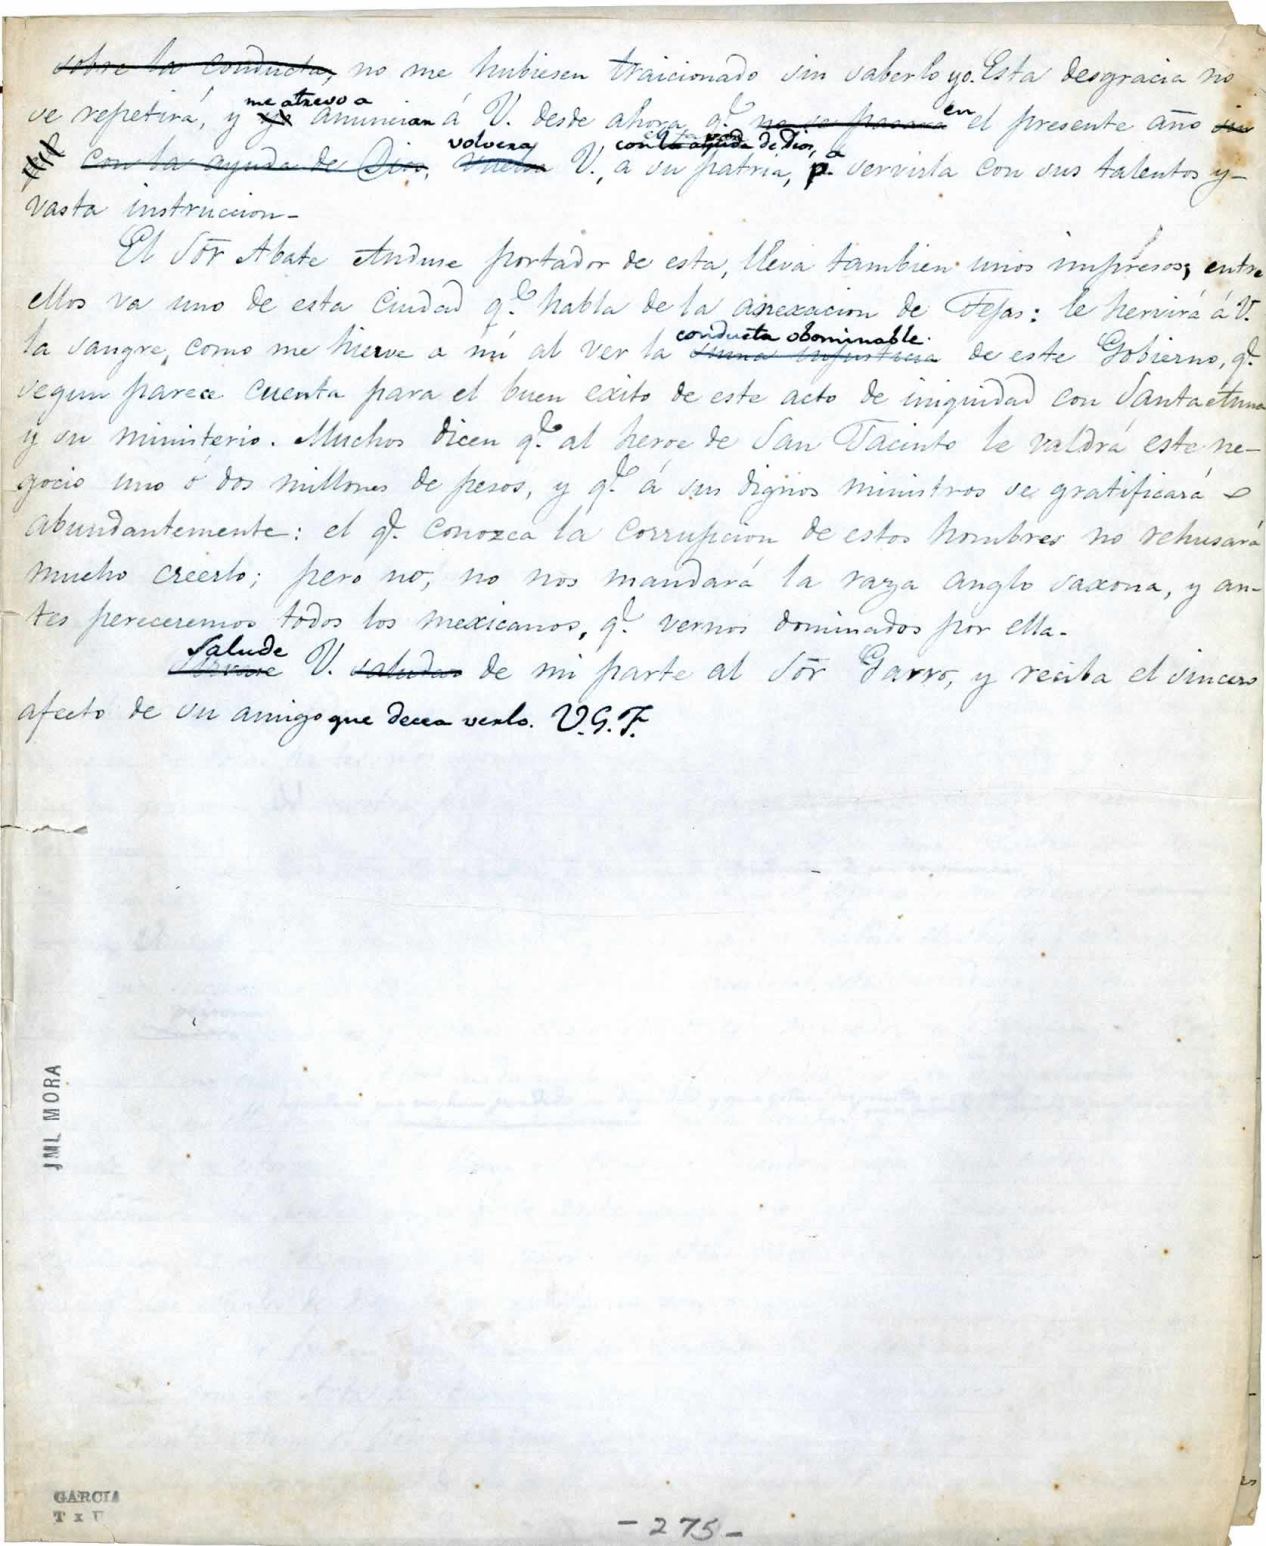 sobre la conducta, no me hubiesen traicionado sin saberlo yo. Esta desgracia no
se repetirá, y yo me atrevo a anunciar á V. desde ahora q.e no se pasara en el presente año sin
con la ayuda de Dios, vuelva volvera V., con la ayuda de Dios, a su patria, p.a servirla con sus talentos y-
vasta instruccion-
El Sōr Abate Anduse portador de esta, lleva tambien unos impresos; entre
ellos va uno de esta Ciudad q.e habla de la anexacion de Tejas: le hervirá á V.
la sangre, como me hierve a mí al ver la suma injusticia conducta abominable de este Gobierno, q.e
segun parece cuenta para el buen exito de este acto de iniquidad con Santa Anna
y su ministerio. Muchos dicen q.e al heroe de San Jacinto le valdrá este ne-
gocio uno ó dos millones de pesos, y q.e á sus dignos ministros se gratificará
abundantemente: el q.e conozca la corrupcion de estos hombres no rehusará
mucho creerlo; pero no, no nos mandará la raza anglo saxona, y an-
tes pereceremos todos los mexicanos, q.e vernos dominados por ella.
Salude V. saludar de mi parte al Sōr Garro, y reciba el sincero
afecto de su amigo que decea verlo. V.G.F.
JML MORA
GARCIA
-275-